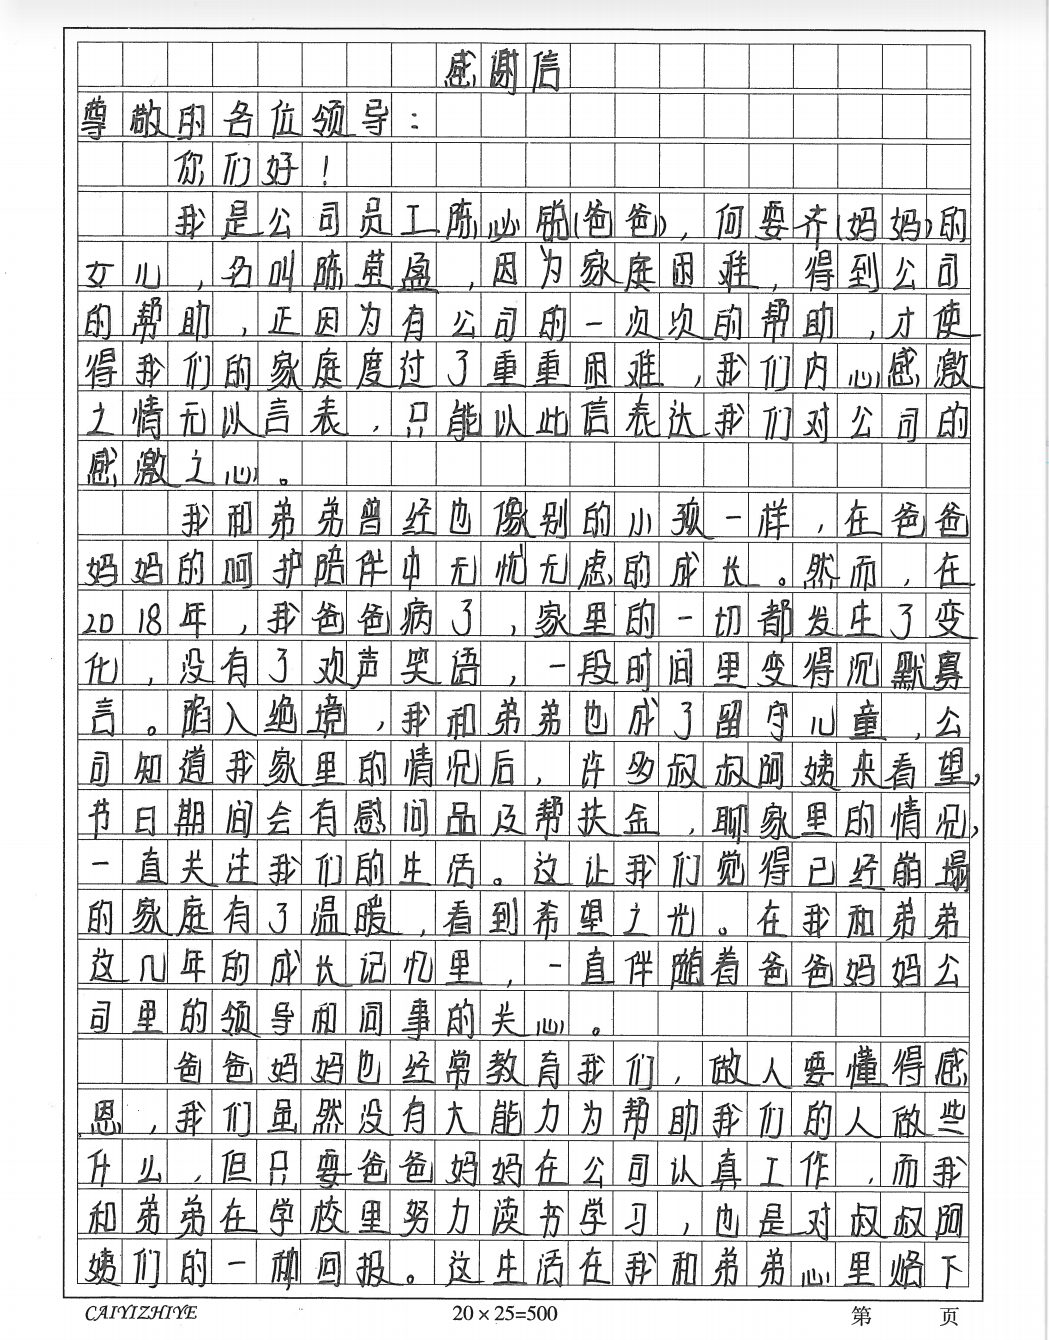 感谢信
尊敬的各位领导：
你们好！
我是公司员工陈必锐(爸爸)，何要齐(妈妈)的
女儿，名叫陈莫盈，因为家庭困难，得到公司
的帮助，正因为有公司的一次次的帮助，才使
得我们的家庭度过了重重困难，我们内心感激
之情无以言表，只能以此信表达我们对公司的
感激之心。
我和弟弟曾经也像别的小孩一样，在爸爸
妈妈的呵护陪伴中无忧无虑的成长。然而，在
2018年，我爸爸病了，家里的一切都发生了变
化，没有了欢声笑语，一段时间里变得沉默寡
言。陷入绝境，我和弟弟也成了留守儿童，公
司知道我家里的情况后，许多叔叔阿姨来看望，
节日期间会有慰问品及帮扶金，聊家里的情况，
一直关注我们的生活。这让我们觉得已经崩塌
的家庭有了温暖，看到希望之光。在我和弟弟
这几年的成长记忆里，一直伴随着爸爸妈妈公
司里的领导和同事的关心。
爸爸妈妈也经常教育我们，做人要懂得感
恩，我们虽然没有大能力为帮助我们的人做些
什么，但只要爸爸妈妈在公司认真工作，而我
和弟弟在学校里努力读书学习，也是对叔叔阿
姨们的一种回报。这生活在我和弟弟心里烙下
CAIYIZHIYE 20×25=500 第 页